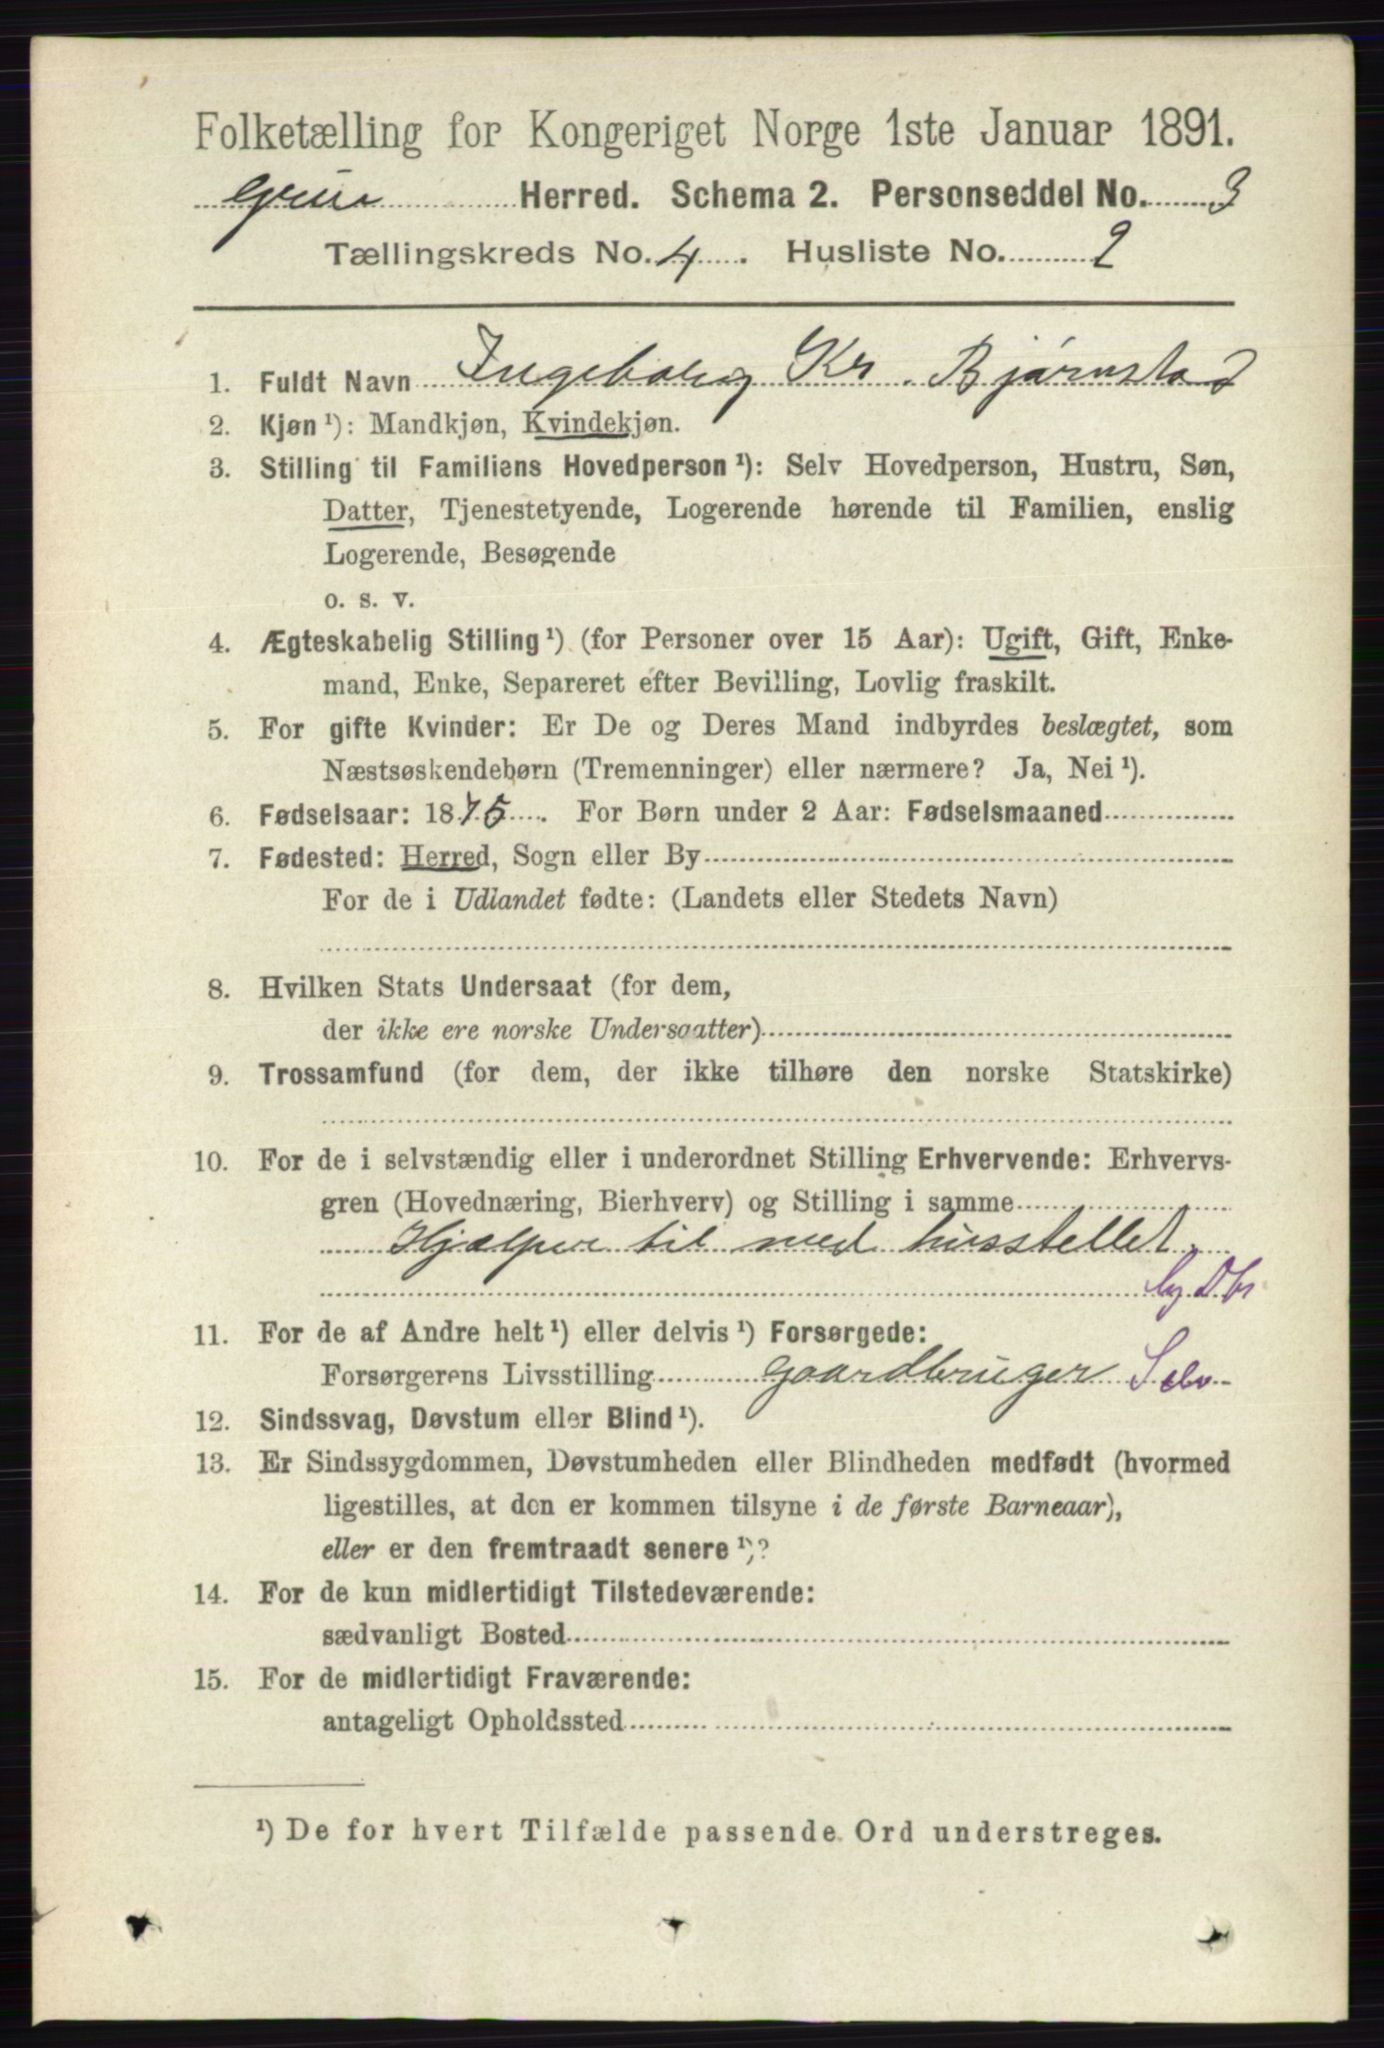 Folketælling for Kongeriget Norge 1ste Januar 1891.
Grue Herred. Schema 2. Personseddel No. 3
Tællingskreds No. 4. Husliste No. 2
1. Fuldt Navn Ingeborg Kr. Bjørnstad
2. Kjøn ¹): Mandkjøn, Kvindekjøn.
3. Stilling til Familiens Hovedperson ¹): Selv Hovedperson, Hustru, Søn,
Datter, Tjenestetyende, Logerende hørende til Familien, enslig
Logerende, Besøgende
o. s. v.
4. Ægteskabelig Stilling ¹) (for Personer over 15 Aar): Ugift, Gift, Enke-
mand, Enke, Separeret efter Bevilling, Lovlig fraskilt.
5. For gifte Kvinder: Er De og Deres Mand indbyrdes beslægtet, som
Næstsøskendebørn (Tremenninger) eller nærmere? Ja, Nei ¹).
6. Fødselsaar: 1875. For Børn under 2 Aar: Fødselsmaaned
7. Fødested: Herred, Sogn eller By
For de i Udlandet fødte: (Landets eller Stedets Navn)
8. Hvilken Stats Undersaat (for dem,
der ikke ere norske Undersaatter)
9. Trossamfund (for dem, der ikke tilhøre den norske Statskirke)
10. For de i selvstændig eller i underordnet Stilling Erhvervende: Erhvervs-
gren (Hovednæring, Bierhverv) og Stilling i samme
Hjælper til med husstellet
11. For de af Andre helt ¹) eller delvis ¹) Forsørgede:
Forsørgerens Livsstilling gaardbruger Selv
12. Sindssvag, Døvstum eller Blind ¹).
13. Er Sindssygdommen, Døvstumheden eller Blindheden medfødt (hvormed
ligestilles, at den er kommen tilsyne i de første Barneaar),
eller er den fremtraadt senere ¹)?
14. For de kun midlertidigt Tilstedeværende:
sædvanligt Bosted
15. For de midlertidigt Fraværende:
antageligt Opholdssted
¹) De for hvert Tilfælde passende Ord understreges.